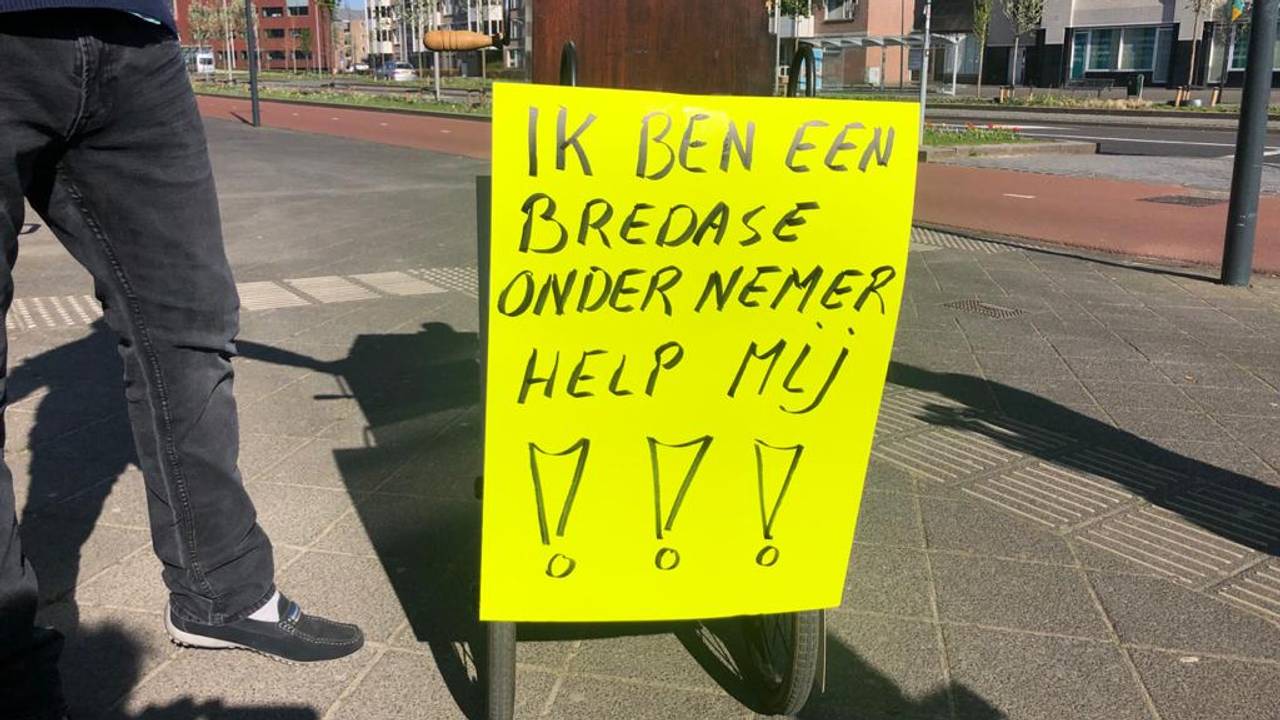 IK BEN EEN
BREDASE
ONDERNEMER
HELP MIJ
!!!